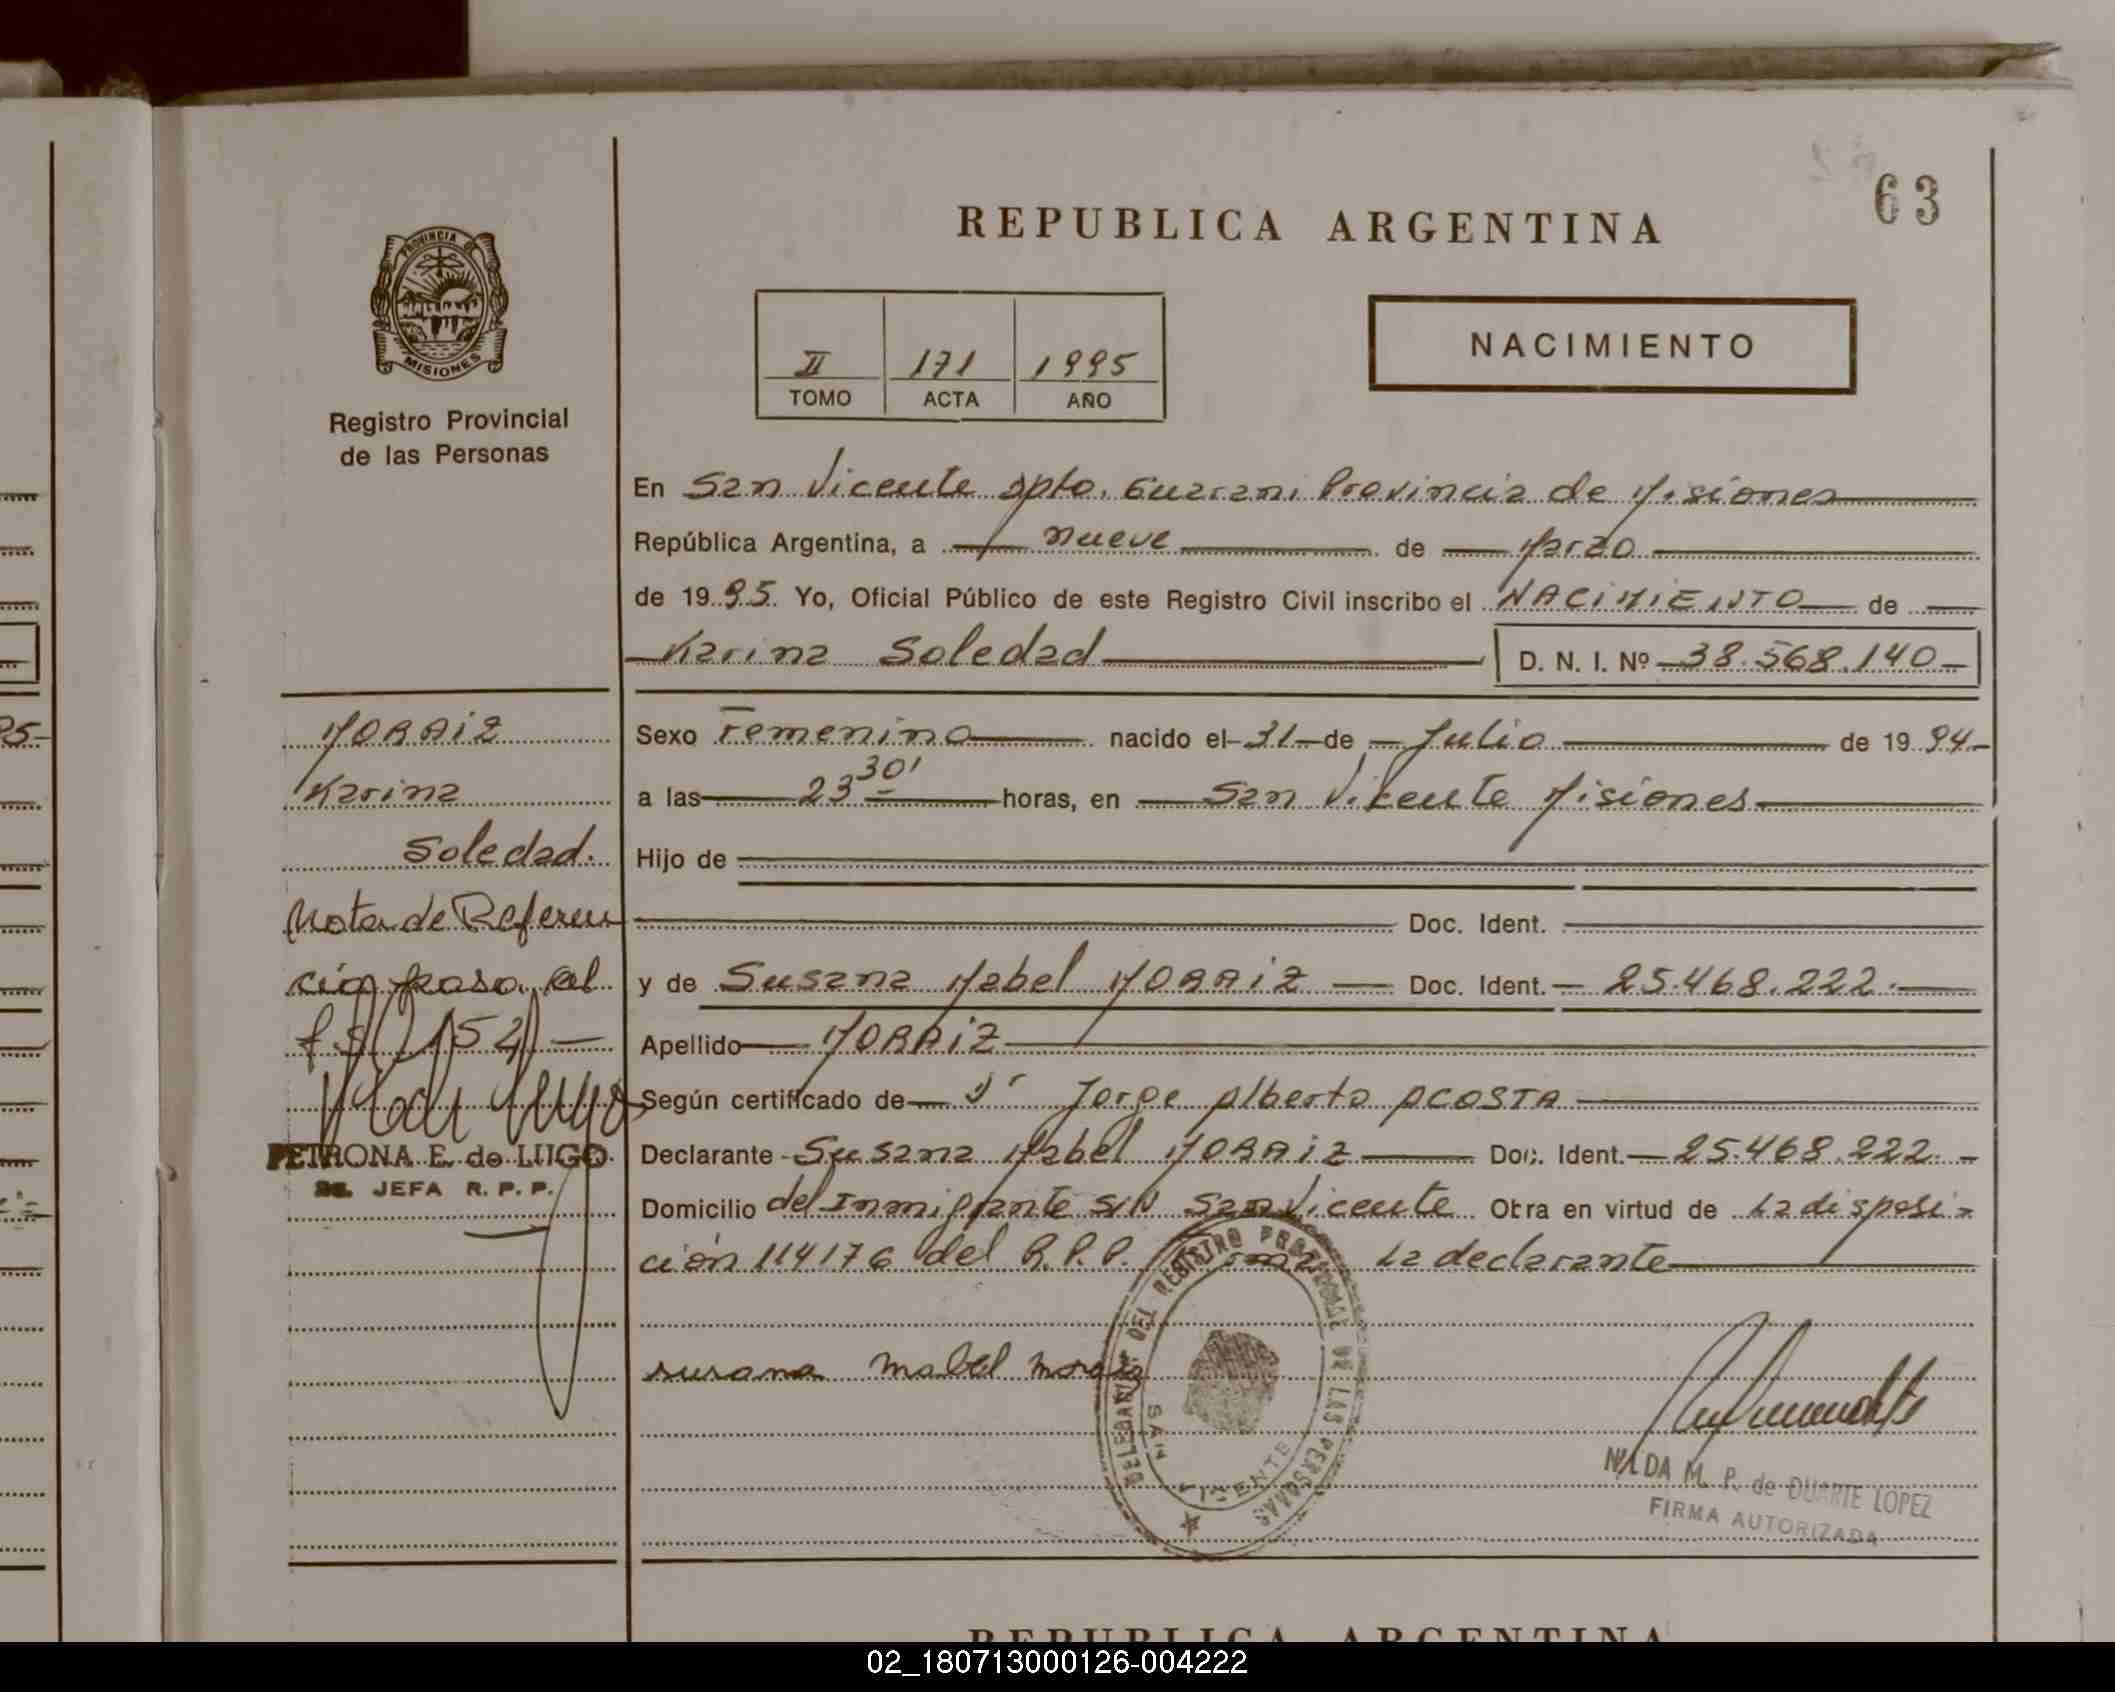 63
REPUBLICA ARGENTINA
PROVINCIA DE
MISIONES
Registro Provincial
de las Personas
II 171 1995
TOMO ACTA AÑO
NACIMIENTO
En San Vicente Dpto. Guarani Provincia de Misiones
República Argentina, a nueve de Marzo
de 1995 Yo, Oficial Público de este Registro Civil inscribo el NACIMIENTO de
Karina Soledad D. N. I. Nº 38.568.140
MORAIZ
Karina
Soledad.
Nota de Referen
cia paso al
fs 154
PETRONA E. de LUGO
JEFA R. P. P.
Sexo Femenino nacido el 31 de Julio de 1994
a las 23 30' horas, en San Vicente Misiones
Hijo de
Doc. Ident.
y de Susana Mabel MORAIZ Doc. Ident. 25.468.222.
Apellido MORAIZ
Según certificado de Jorge Alberto ACOSTA
Declarante Susana Mabel MORAIZ Doc. Ident. 25.468.222.
Domicilio del Inmigrante S/N San Vicente Obra en virtud de La disposi-
ción 114176 del R.P.P. Firma La declarante
susana mabel moraiz
DELEGACION DEL REGISTRO PROVINCIAL DE LAS PERSONAS
SAN VICENTE
NILDA M. P. de DUARTE LOPEZ
FIRMA AUTORIZADA
REPUBLICA ARGENTINA
02_180713000126-004222